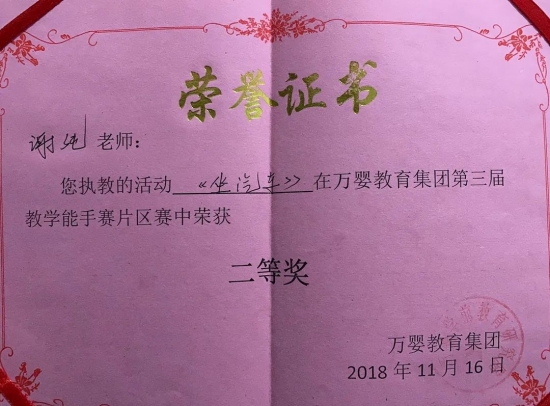 荣誉证书
谢纯 老师：
您执教的活动《坐汽车》在万婴教育集团第三届
教学能手赛片区赛中荣获
二等奖
万婴教育集团
2018年11月16日